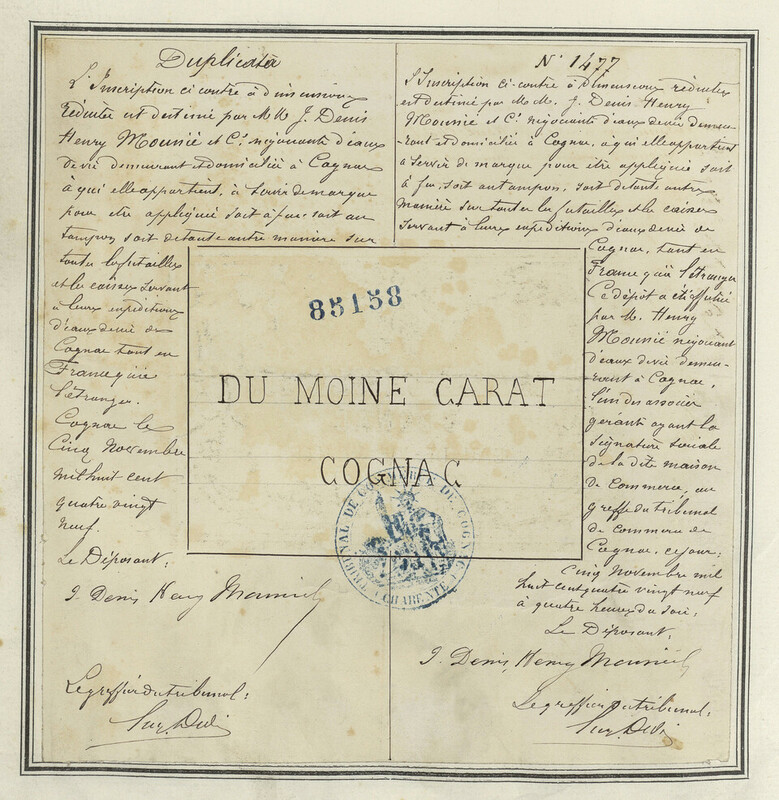 Duplicata
L'Inscription ci contre à dimensions
réduites est destiné par M M J. Denis
Henry Mounié et Cie négociants d'eaux
de vie demeurant et domiciliés à Cognac
à qui elle appartient, à servir de marque
pour être appliquée soit à feu, soit au
tampon soit de toute autre manière sur
toutes les futailles
et les caisses servant
à leurs expéditions
d'eaux de vie de
Cognac tant en
France qu'à
l'étranger.
Cognac le
Cinq Novembre
mil huit cent
quatre vingt
neuf.
Le Déposant:
J. Denis Henry Mounié
Le greffier du tribunal:
N° 1477
L'Inscription ci-contre à Dimensions réduites
est destiné par M M. J. Denis Henry
Mounié et Cie négociants d'eaux de vie demeu-
rant et domiciliés à Cognac, à qui elle appartient
à servir de marque pour être appliquée soit
à feu, soit au tampon, soit de toute autre
manière sur toutes les futailles et les caisses
servant à leurs expéditions d'eaux de vie de
Cognac, tant en
France qu'à l'étranger
Ce dépôt a été effectué
par M. Henry
Mounié négociant
d'eaux de vie demeu-
rant à Cognac,
l'un des associés
gérants ayant la
signature sociale
de la dite maison
de Commerce, au
greffe du tribunal
de Commerce de
Cognac, ce jour:
Cinq Novembre mil
huit cent quatre vingt neuf
à quatre heures du soir:
Le Déposant:
J. Denis, Henry Mounié
Le greffier du tribunal:
85158
DU MOINE CARAT
COGNAC
TRIBUNAL DE COMMERCE DE COGNAC
CHARENTE